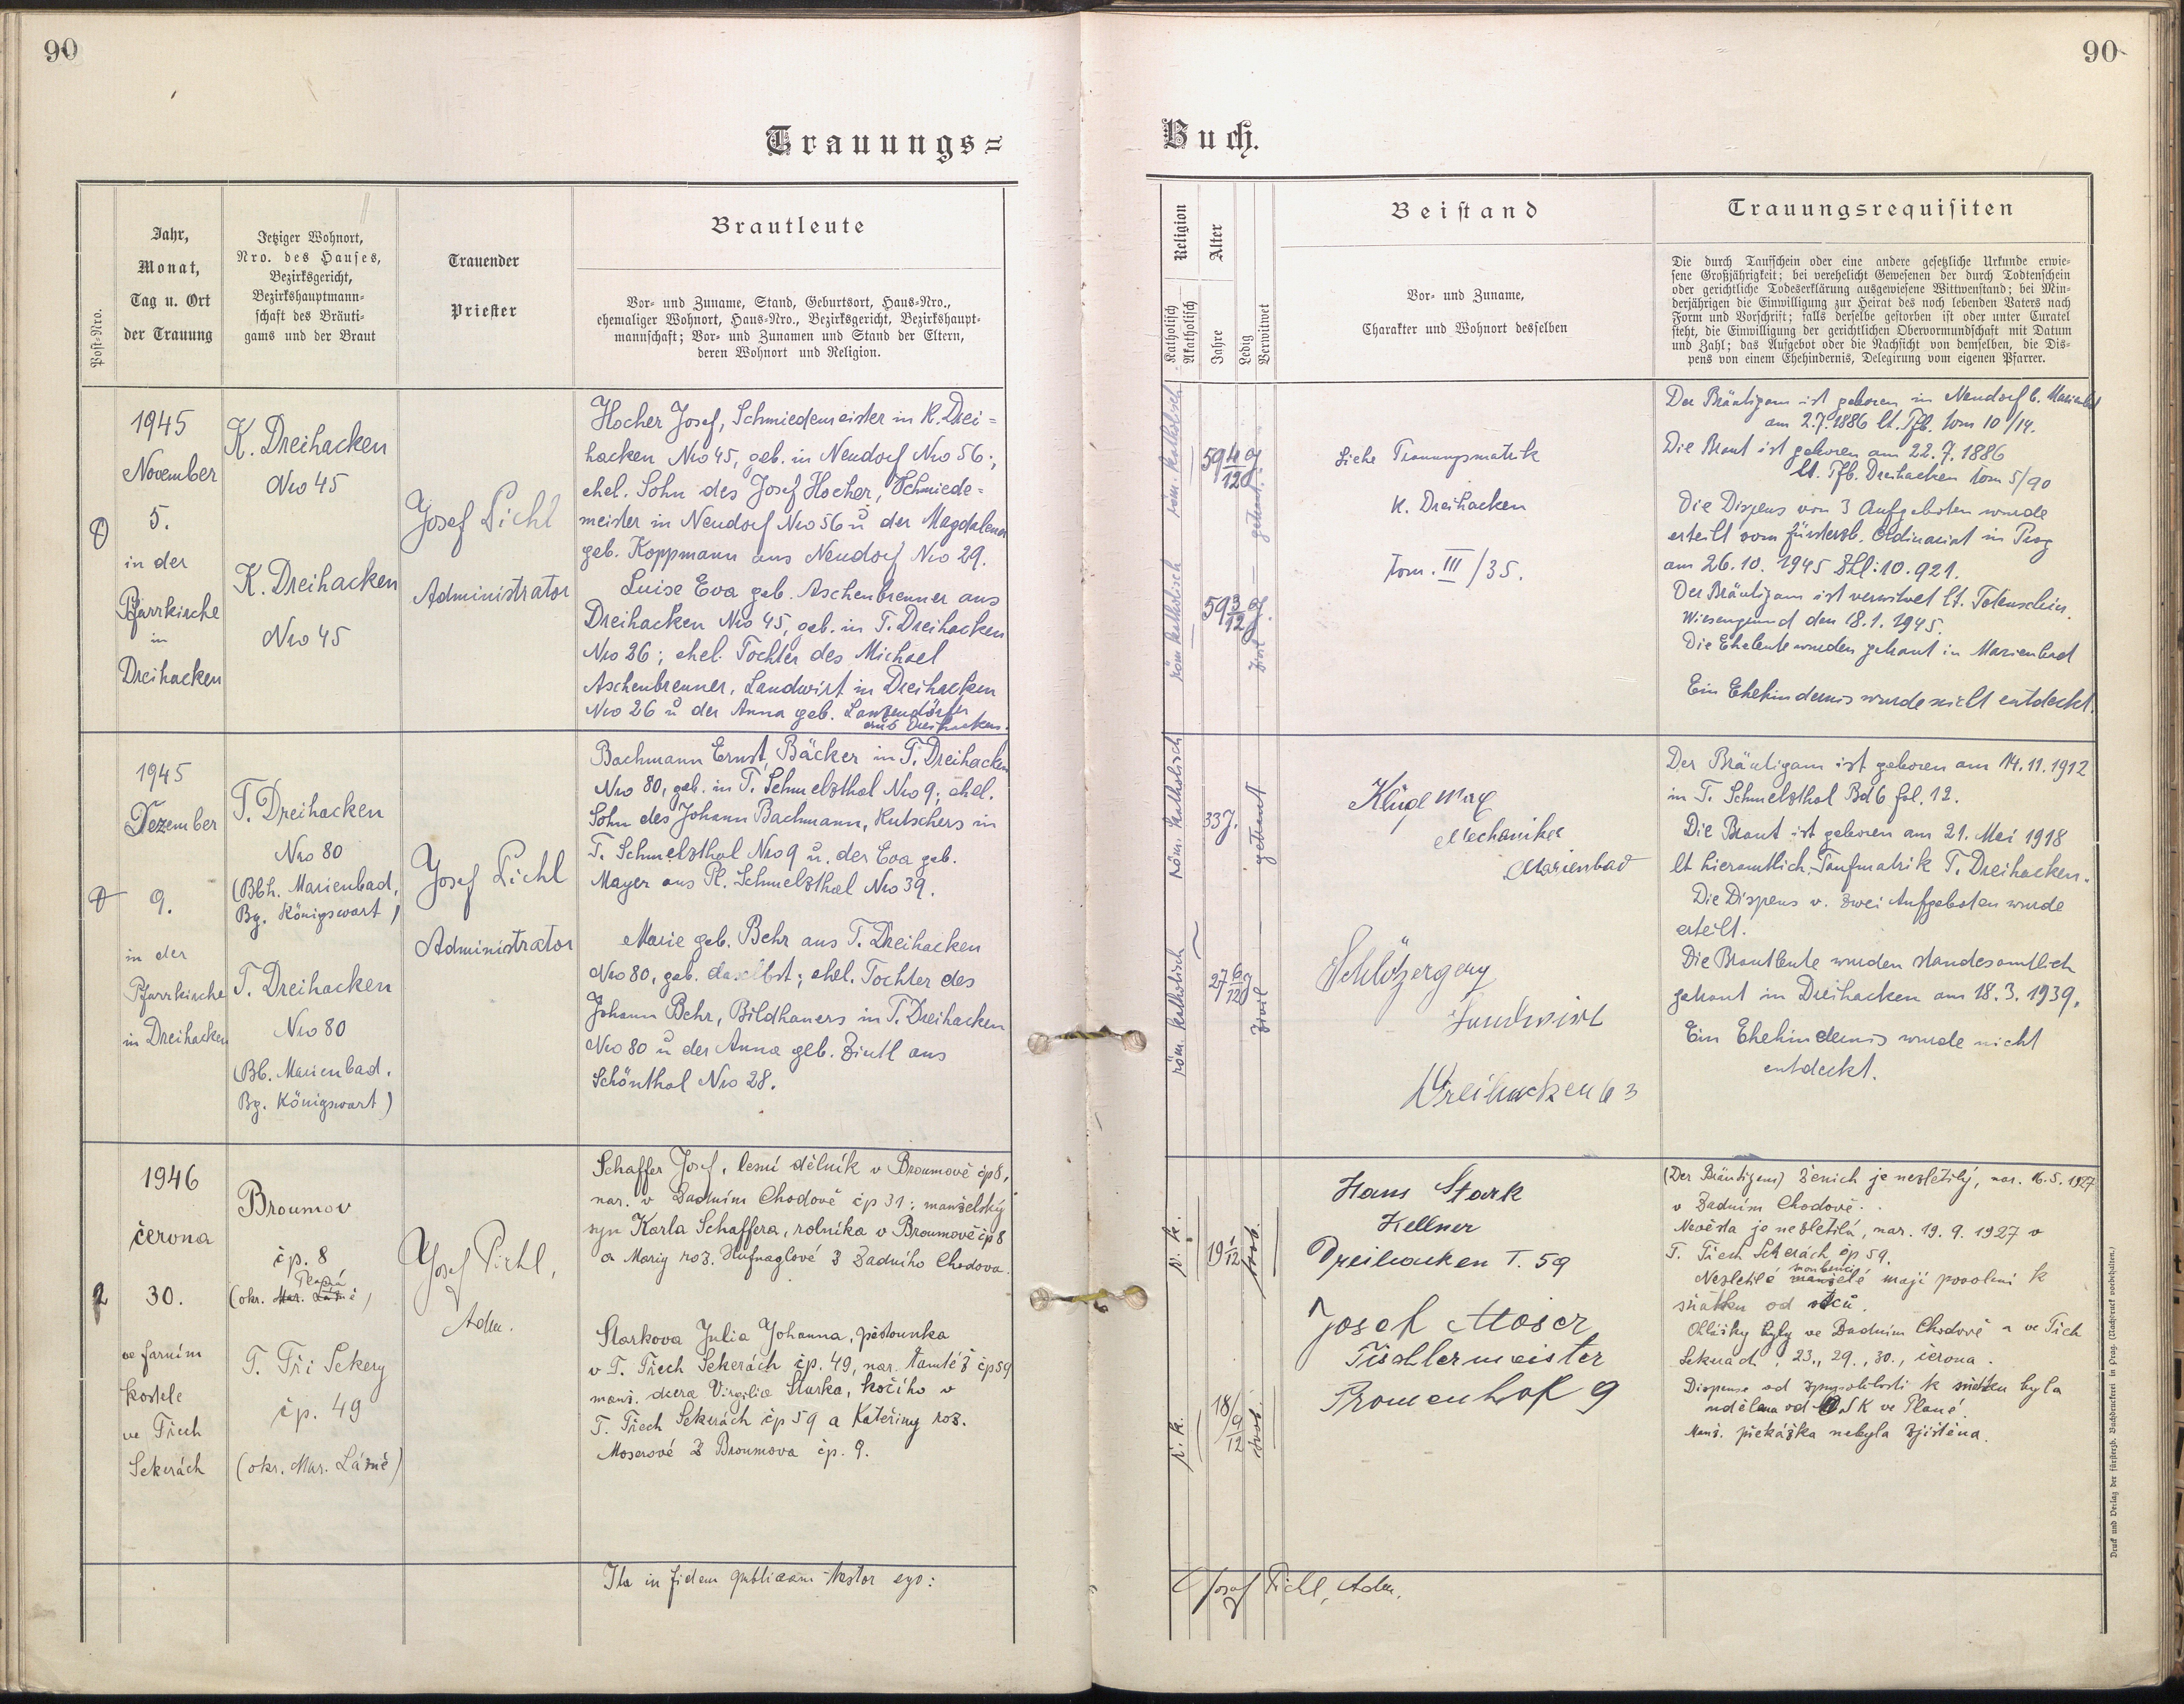 90
90
Trauungs=
Buch.
Post-Nro.
Jahr,
Monat,
Tag u. Ort
der Trauung
Jetziger Wohnort,
Nro. des Hauses,
Bezirksgericht,
Bezirkshauptmann-
schaft des Bräuti-
gams und der Braut
Trauender
Priester
Brautleute
Vor- und Zuname, Stand, Geburtsort, Haus-Nro.,
ehemaliger Wohnort, Haus-Nro., Bezirksgericht, Bezirkshaupt-
mannschaft; Vor- und Zunamen und Stand der Eltern,
deren Wohnort und Religion.
Religion
Katholisch
Akatholisch
Alter
Jahre
Ledig
Verwitwet
Beistand
Vor- und Zuname,
Charakter und Wohnort desselben
Trauungsrequisiten
Die durch Taufschein oder eine andere gesetzliche Urkunde erwie-
sene Großjährigkeit; bei verehelicht Gewesenen der durch Todtenschein
oder gerichtliche Todeserklärung ausgewiesene Wittwenstand; bei Min-
derjährigen die Einwilligung zur Heirat des noch lebenden Vaters nach
Form und Vorschrift; falls derselbe gestorben ist oder unter Curatel
steht, die Einwilligung der gerichtlichen Obervormundschaft mit Datum
und Zahl; das Aufgebot oder die Nachsicht von demselben, die Dis-
pens von einem Ehehindernis, Delegirung vom eigenen Pfarrer.
1945
November
5.
in der
Pfarrkirche
in
Dreihacken
K. Dreihacken
Nro 45
K. Dreihacken
Nro 45
Josef Pichl
Administrator
Hocher Josef, Schmiedemeister in K. Drei=
hacken Nro 45, geb. in Neudorf Nro 56;
ehel. Sohn des Josef Hocher, Schmiede=
meister in Neudorf Nro 56 u der Magdalena
geb. Koppmann aus Neudorf Nro 29.
Luise Eva geb. Aschenbrenner aus
Dreihacken Nro 45, geb. in T. Dreihacken
Nro 26; ehel. Tochter des Michael
Aschenbrenner, Landwirt in Dreihacken
Nro 26 u der Anna geb. Lanzendörfer
aus Dreihacken.
röm. katholisch
röm. katholisch
59 4/12 J.
59 3/12 J.
getraut
zivil
Siehe Trauungsmatrik
K. Dreihacken
Tom. III/35.
Der Bräutigam ist geboren in Neudorf b. Marienbad
am 2.7.1886 lt. Tfb. tom 10/14.
Die Braut ist geboren am 22.7.1886
lt. Tfb. Dreihacken tom 5/90
Die Dispens von 3 Aufgeboten wurde
erteilt vom fürsterzb. Ordinariat in Prag
am 26.10. 1945 Zhl: 10.921.
Der Bräutigam ist verwitwet lt. Totenschein
Wiesengrund den 18.1.1945.
Die Eheleute wurden getraut in Marienbad
Ein Ehehindernis wurde nicht entdeckt.
1945
Dezember
9.
in der
Pfarrkirche
in Dreihacken
T. Dreihacken
Nro 80
(Bbh. Marienbad,
Bg. Königswart)
T. Dreihacken
Nro 80
(Bb. Marienbad,
Bg. Königswart)
Josef Pichl
Administrator
Bachmann Ernst, Bäcker in T. Dreihacken
Nro 80, geb. in T. Schmelzthal Nro 9; ehel.
Sohn des Johann Bachmann, Kutschers in
T. Schmelzthal Nro 9 u. der Eva geb.
Mayer aus Pl. Schmelzthal Nro 39.
Marie geb. Behr aus T. Dreihacken
Nro 80, geb. daselbst; ehel. Tochter des
Johann Behr, Bildhauers in T. Dreihacken
Nro 80 u der Anna geb. Zintl aus
Schönthal Nro 28.
röm. katholisch
röm. katholisch
33 J.
27 6/12 J
getraut
zivil
Kluge Max
Mechaniker
Marienbad
Landwirt
Dreihacken 63
Der Bräutigam ist geboren am 14.11.1912
in T. Schmelzthal Bd 6 fol. 12.
Die Braut ist geboren am 21. Mai 1918
lt hieramtlich. Taufmatrik T. Dreihacken.
Die Dispens v. zwei Aufgeboten wurde
erteilt.
Die Brautleute wurden standesamtlich
getraut in Dreihacken am 18.3.1939.
Ein Ehehindernis wurde nicht
entdeckt.
2
1946
června
30.
ve farním
kostele
ve Třech
Sekerách
Broumov
čp. 8
Planá
(okr. Mar. Lázně)
T. Tři Sekery
čp. 49
(okr. Mar. Lázně)
Josef Pichl,
Adm.
Schaffer Josef, lesní dělník v Broumově čp 8,
nar. v Zadním Chodově čp 31; manželský
syn Karla Schaffera, rolníka v Broumově čp 8
a Marie roz. Hufnaglové z Zadního Chodova.
Starkova Julia Johanna, pěstounka
v T. Třech Sekerách čp. 49, nar. tamtéž čp 59
manž. dcera Virgilia Starka, kočího v
T. Třech Sekerách čp 59 a Kateřiny roz.
Moserové z Broumova čp. 9.
ř. k.
ř. k.
19 1/12
18 9/12
svob.
svob.
Hans Stark
Kellner
Dreihacken T. 59
Josef Moser
Tischlermeister
Promenhof 9
(Der Bräutigam) Ženich je nezletilý, nar. 16.5.1927
v Zadním Chodově.
Nevěsta je nezletilá, nar. 19.9.1927 v
T. Třech Sekerách čp 59.
snoubenci
Nezletilé manželé mají povolení k
sňatku od otců.
Ohlášky byly ve Zadním Chodově a ve Třech
Sekerách 23., 29., 30., června.
Dispense od způsobilosti k sňatku byla
udělena od ONSK ve Plané.
Manž. překážka nebyla zjištěna.
Ita in fidem publicam testor ego:
Josef Pichl, Adm.
Druck und Verlag der fürsterzb. Buchdruckerei in Prag. (Nachdruck vorbehalten.)